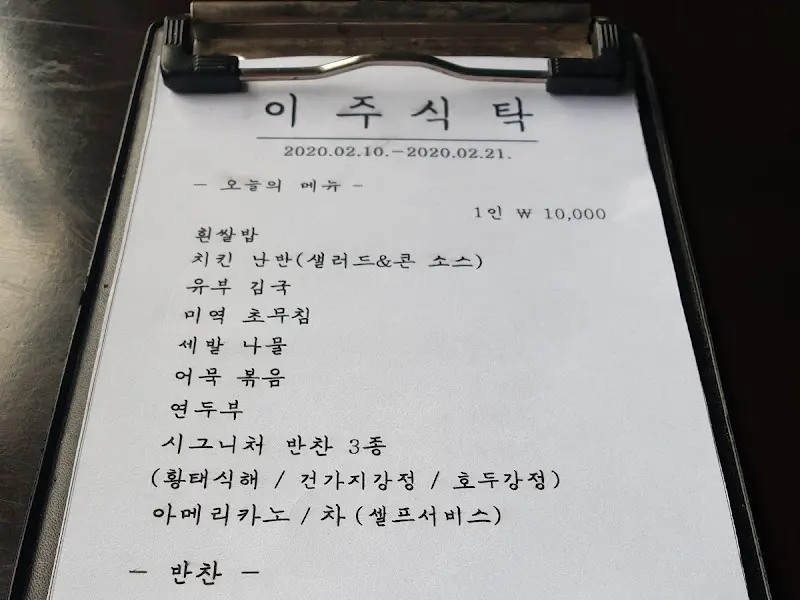 이 주 식 탁
2020.02.10.-2020.02.21.
- 오늘의 메뉴 -
1인 ₩ 10,000
흰쌀밥
치킨 난반(샐러드&콘 소스)
유부 김국
미역 초무침
세발 나물
어묵 볶음
연두부
시그니처 반찬 3종
(황태식해 / 건가지강정 / 호두강정)
아메리카노 / 차 (셀프서비스)
- 반찬 -